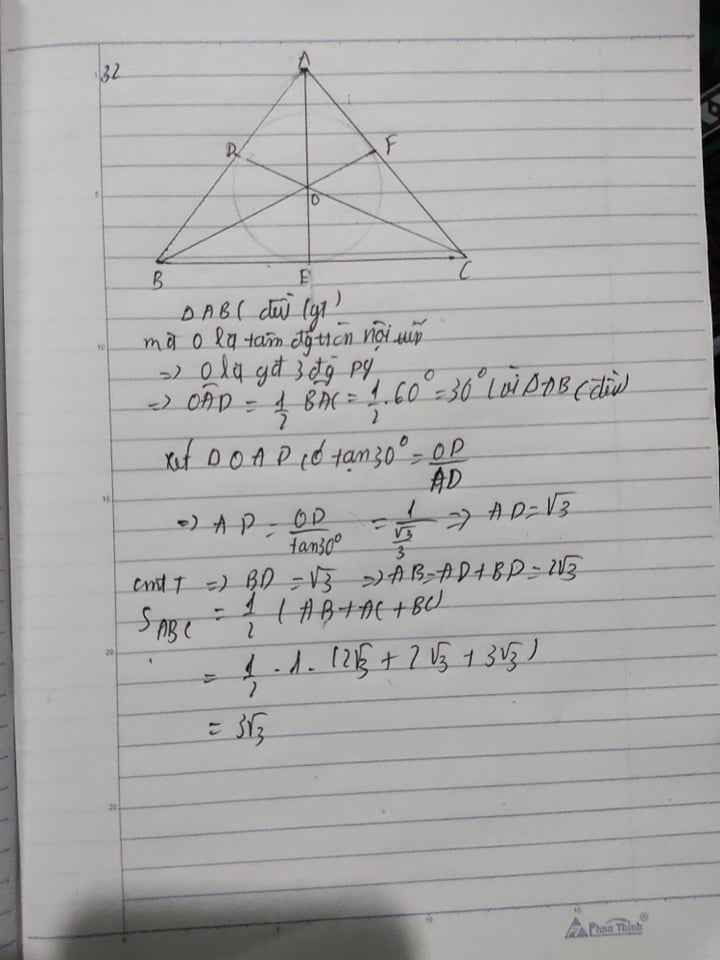 32
A
D
F
O
B
E
C
Δ ABC đều (gt)
mà O là tâm đgtròn nội tiếp
=> O là gđ 3 đg pg
=> OAD = 1/2 BAC = 1/2 . 60° = 30° (vì Δ ABC đều)
Xét Δ OAD có tan30° = OD/AD
=> AD = OD/tan30° = 1/(√3/3) => AD = √3
cmtT => BD = √3 => AB = AD + BD = 2√3
S ABC = 1/2 (AB + AC + BC)
= 1/2 . 1 . (2√3 + 2√3 + 3√3)
= 3√3
5
10
15
20
25
5
10
15
Phan Thinh®